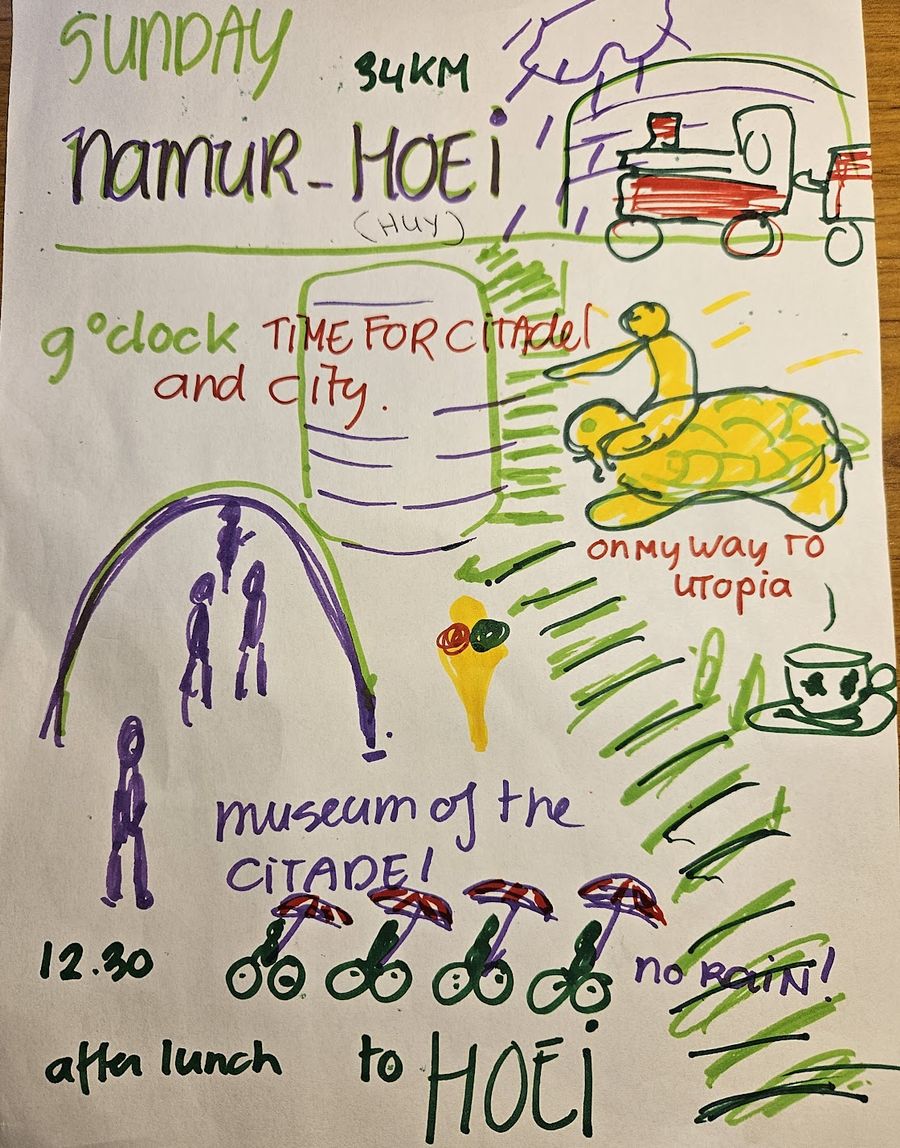 SUNDAY
34KM
NAMUR - HOEi
(HUY)
9 o'clock TiME FOR CiTAdel
and CiTy.
ON MY WAY TO
UTOPiA
museum of the
CiTADEl
12.30
no RAiN!
after lunch to HOEi